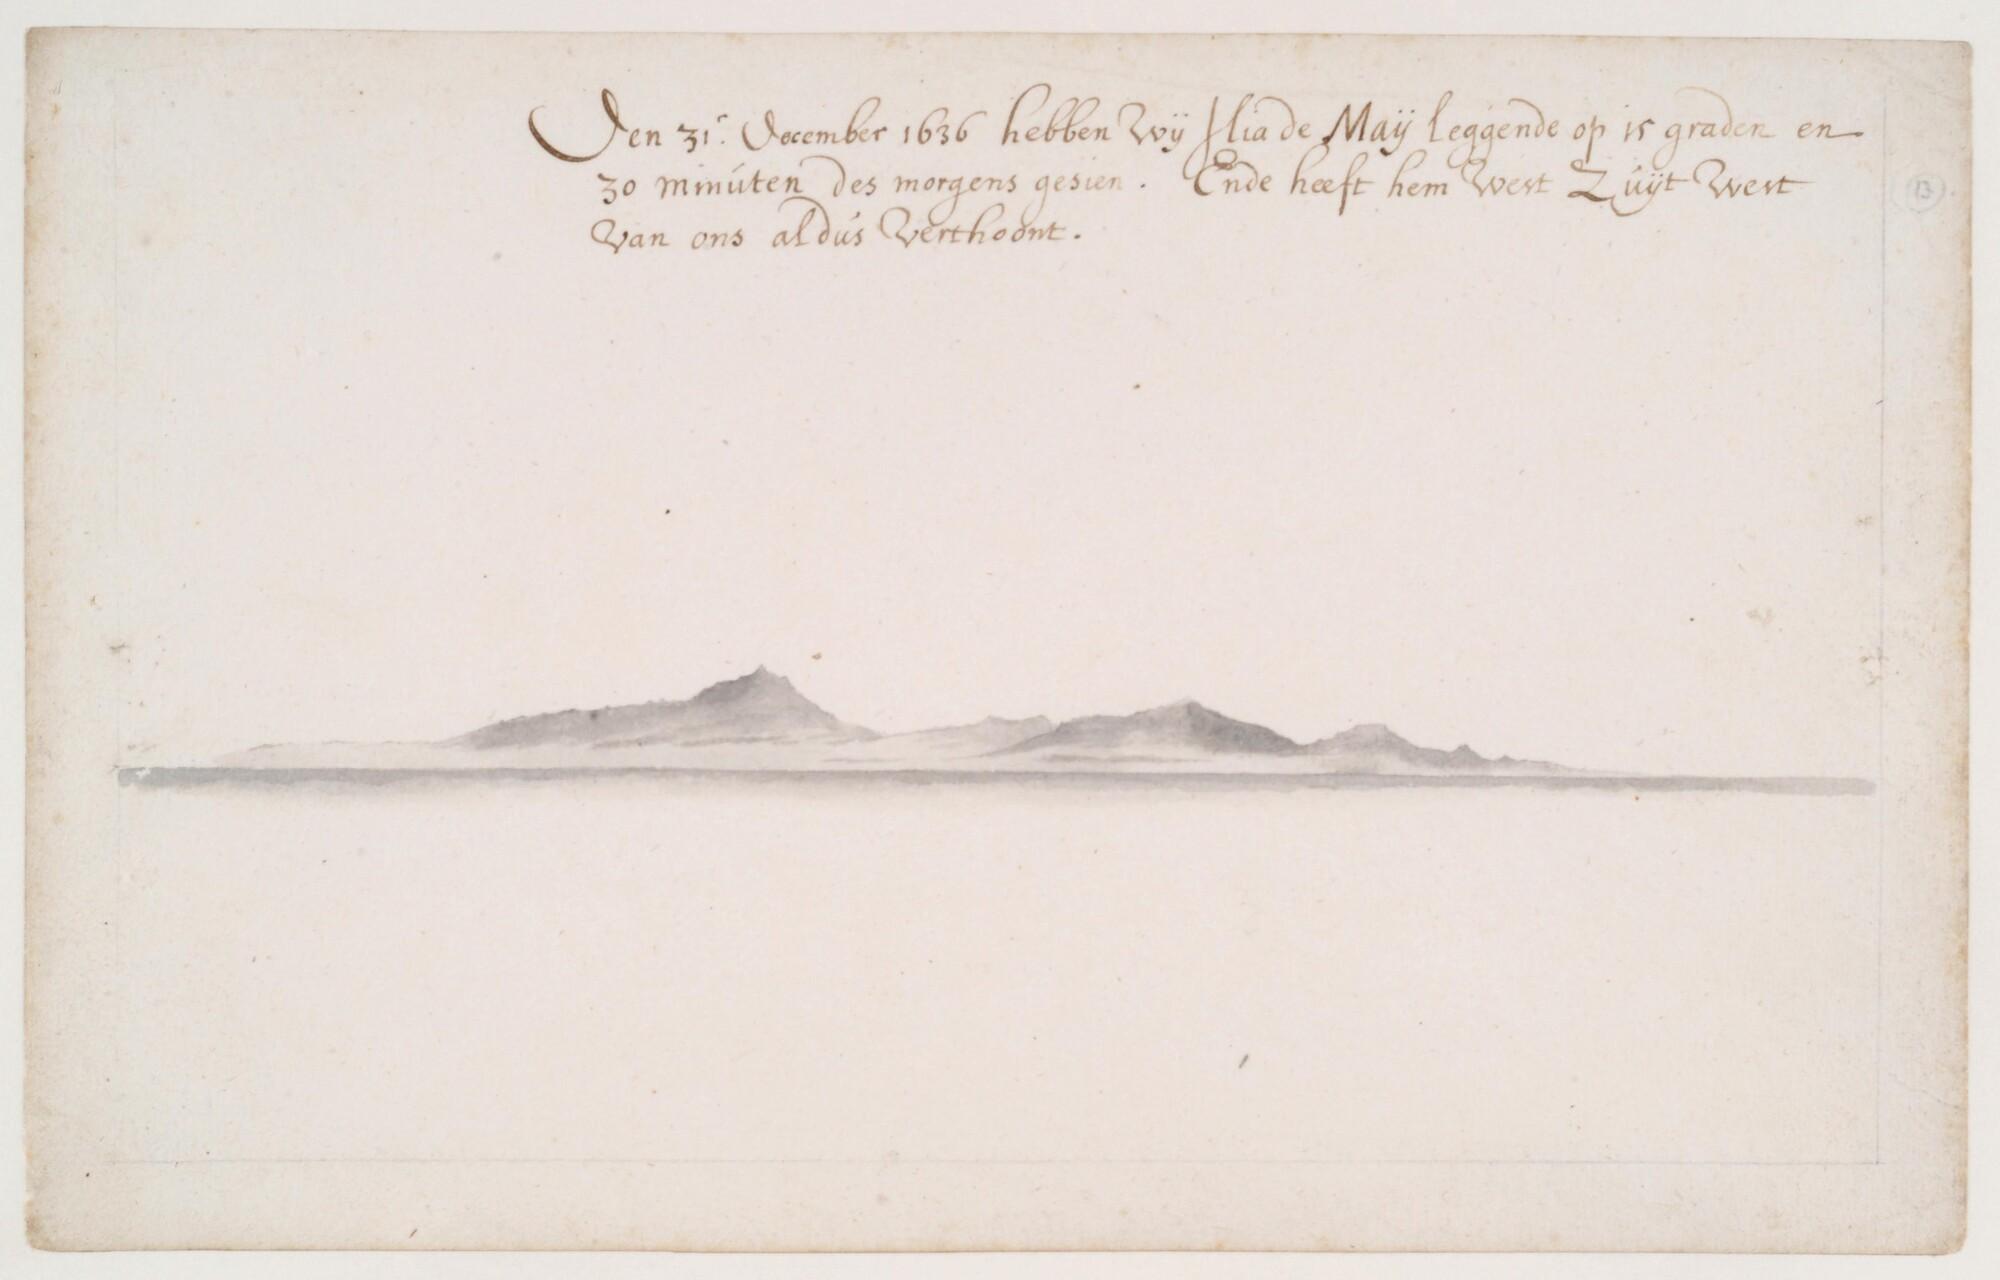 Den 31.ᵉ December 1636 hebben Wÿ Ilia de Maÿ leggende op 15 graden en
30 minúten des morgens gesien. Ende heeft hem West Zúÿt West
Van ons aldús Verthoont.
13